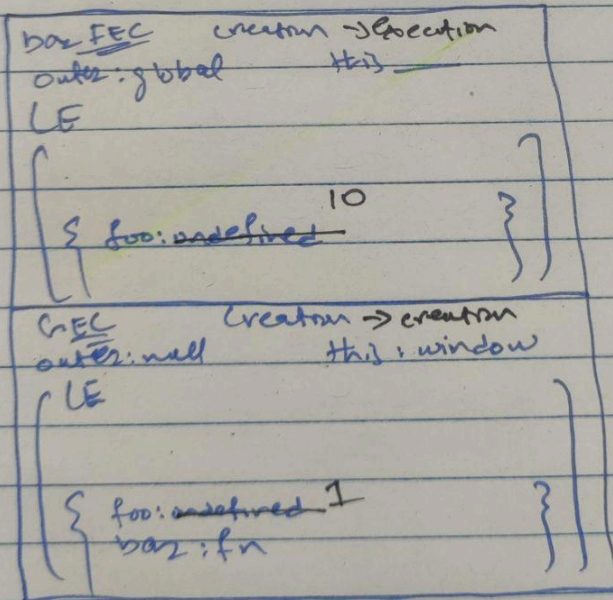 baz FEC creation → execution
outer: global this
LE
10
{ foo: undefined }
GEC creation → creation
outer: null this: window
LE
{ foo: undefined 1 }
baz: fn